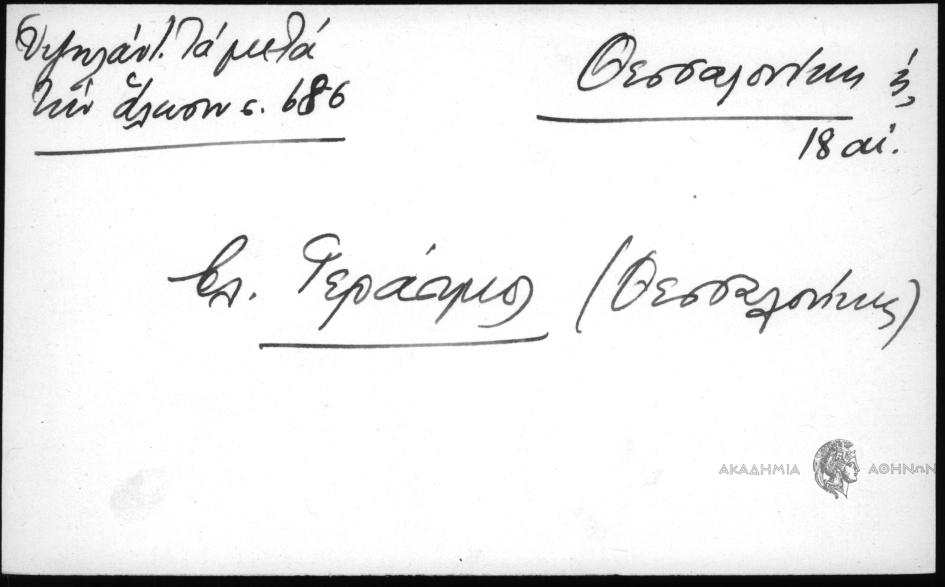 Ὑψηλάντ. Τά μετά
τήν ἅλωσιν σ. 686
Θεσσαλονίκης ἡ
18 αἰ.
βλ. Γεράσιμος (Θεσσαλονίκης)
ΑΚΑΔΗΜΙΑ ΑΘΗΝΩΝ